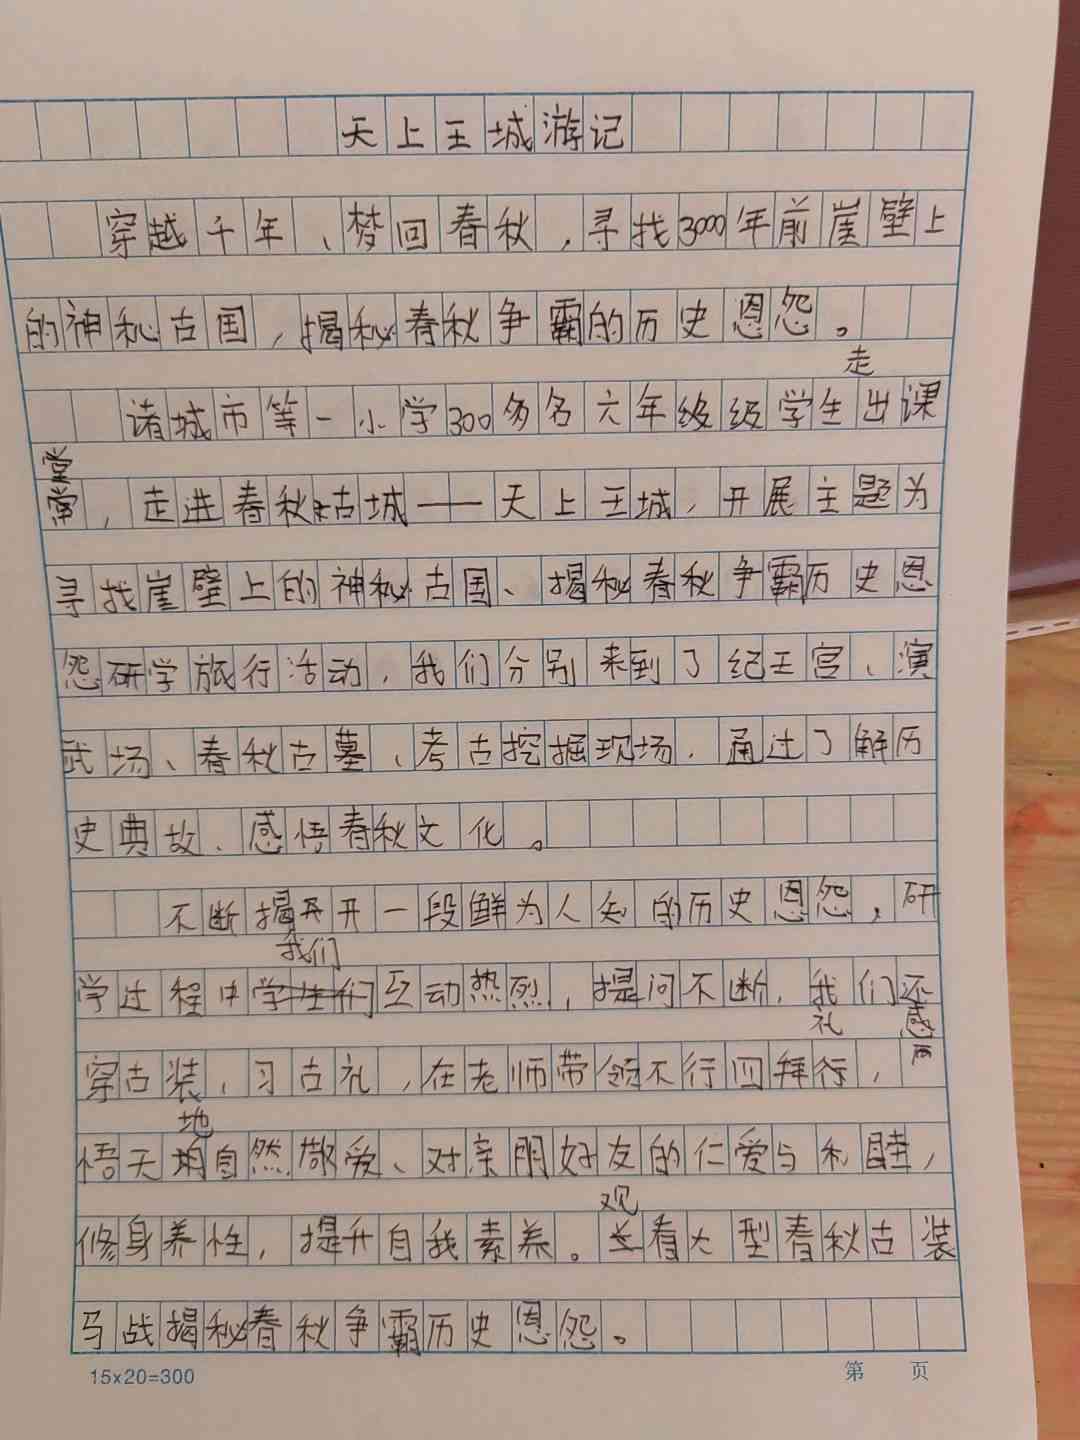 天上王城游记
穿越千年、梦回春秋，寻找3000年前崖壁上
的神秘古国，揭秘春秋争霸的历史恩怨。
走
诸城市第一小学300多名六年级级学生出课
堂
，走进春秋古城——天上王城，开展主题为
寻找崖壁上的神秘古国、揭秘春秋争霸历史恩
怨研学旅行活动，我们分别来到了纪王宫、演
武场、春秋古墓、考古挖掘现场，通过了解历
史典故、感悟春秋文化。
不断揭开开一段鲜为人知的历史恩怨，研
我们
学过程中学生们互动热烈，提问不断，我们还
礼 感
穿古装，习古礼，在老师带领下行四拜行，
地
悟天 自然敬爱、对亲朋好友的仁爱与和睦，
观
修身养性，提升自我素养。看大型春秋古装
马战揭秘春秋争霸历史恩怨。
15×20=300
第 页